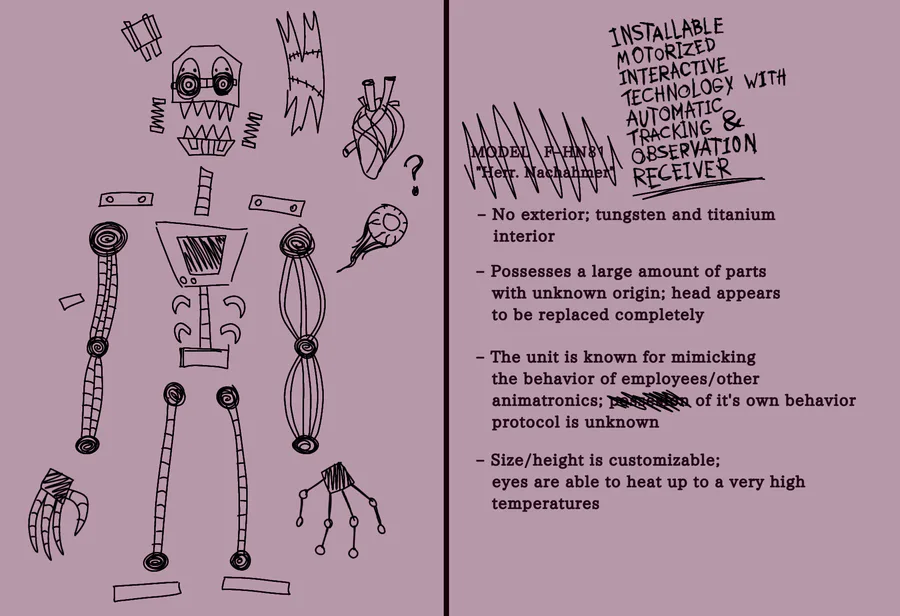 INSTALLABLE
MOTORIZED
INTERACTIVE
TECHNOLOGY WITH
AUTOMATIC
TRACKING &
OBSERVATION
RECEIVER
MODEL F-HN81
"Herr. Nachahmer"
– No exterior; tungsten and titanium
interior
– Possesses a large amount of parts
with unknown origin; head appears
to be replaced completely
– The unit is known for mimicking
the behavior of employees/other
animatronics; of it's own behavior
protocol is unknown
– Size/height is customizable;
eyes are able to heat up to a very high
temperatures
?